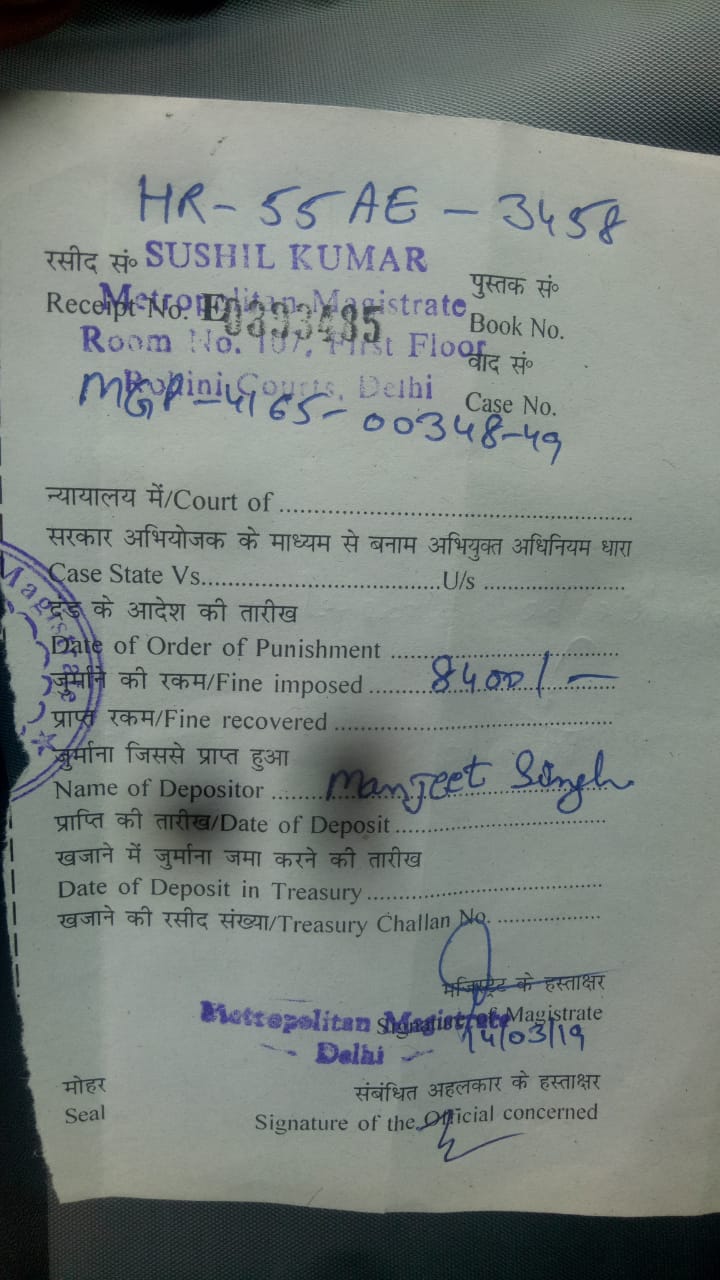 HR-55AE-3458
रसीद सं० SUSHIL KUMAR
पुस्तक सं०
Metropolitan Magistrate
Receipt No. E0893485
Book No.
Room No. 107, First Floor
वाद सं०
Rohini Courts, Delhi
Case No.
MGP-4165-00348-49
न्यायालय में/Court of ..........
सरकार अभियोजक के माध्यम से बनाम अभियुक्त अधिनियम धारा
Case State Vs..........U/s ..........
दंड के आदेश की तारीख
Date of Order of Punishment ..........
जुर्माने की रकम/Fine imposed .......... 8400/-
प्राप्त रकम/Fine recovered ..........
जुर्माना जिससे प्राप्त हुआ
Name of Depositor .......... Manjeet Singh
प्राप्ति की तारीख/Date of Deposit ..........
खजाने में जुर्माना जमा करने की तारीख
Date of Deposit in Treasury ..........
खजाने की रसीद संख्या/Treasury Challan No. ..........
मजिस्ट्रेट के हस्ताक्षर
Metropolitan Magistrate
Signature of Magistrate
14/03/19
Delhi
मोहर
संबंधित अहलकार के हस्ताक्षर
Seal
Signature of the Official concerned